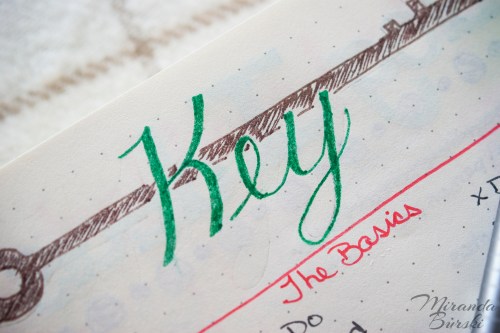 Key
The Basics
x
Do
Miranda
Burski